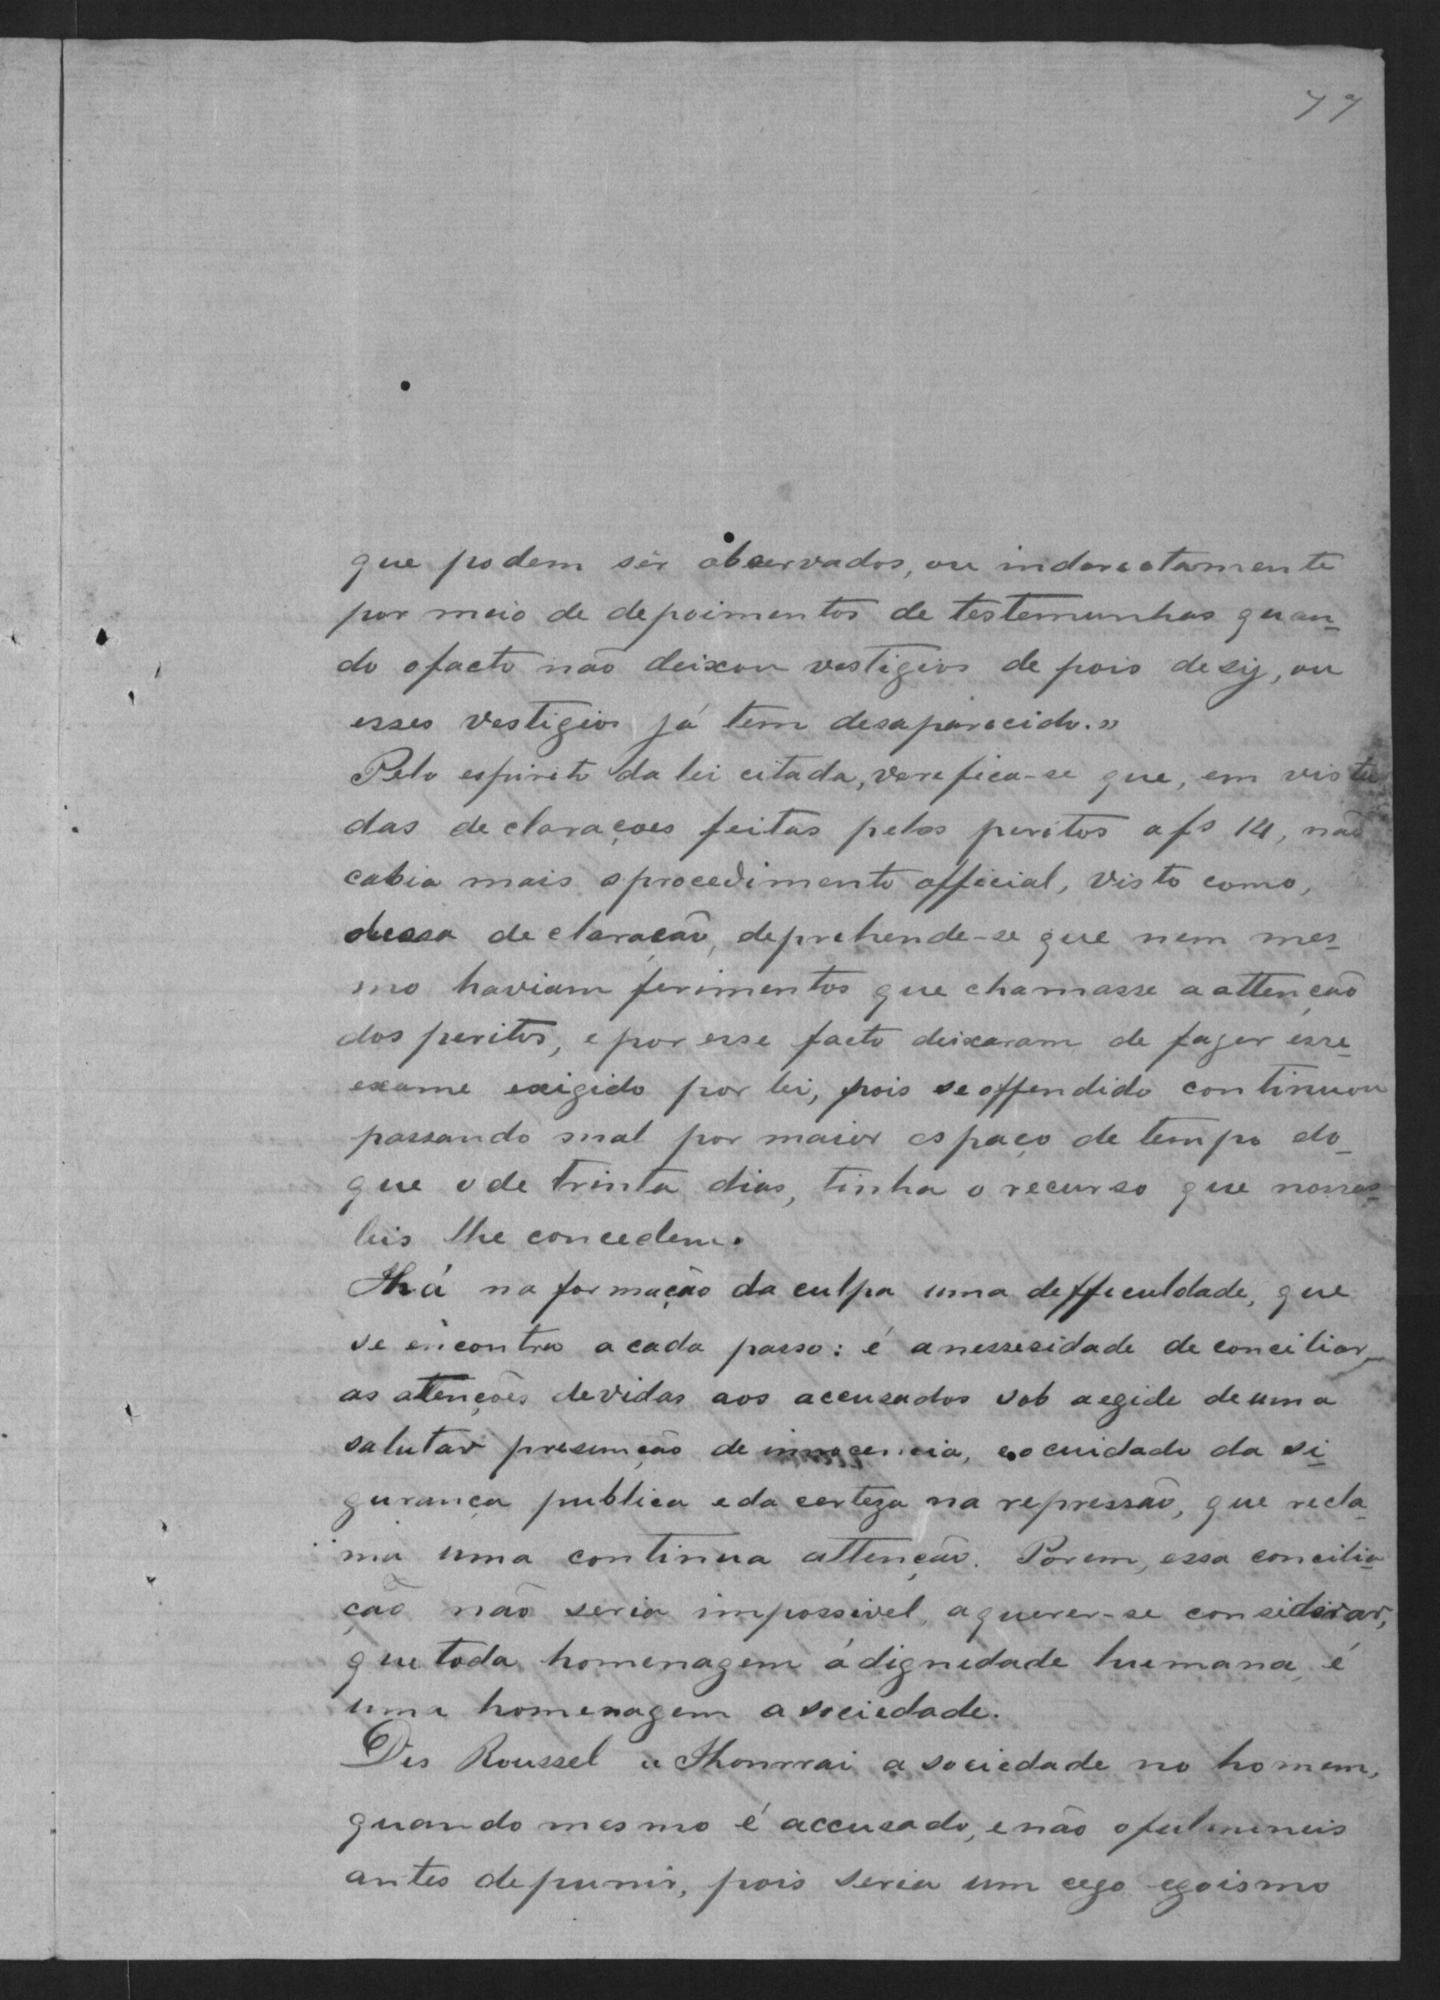 77
que podem sêr observados, ou indorectamente
por meio de depoimentos de testemunhas quan-
do o facto não deixou vestigios depois de sij, ou
esses vestigios já tem desaparecido.»
Pelo espirito da lei citada, verefica-se que, em vista
das declarações feitas pelos peritos a fs 14, não
cabia mais o procedimento official, visto como,
dessa declaração, deprehende-se que nem mes-
mo haviam ferimentos que chamasse a attenção
dos peritos, e por esse facto deixaram de fazer esse
exame exigido por lei, pois se offendido continuou
passando mal por maior espaço de tempo do
que o de trinta dias, tinha o recurso que nossas
leis lhe concedem.
Há na formação da culpa uma defficuldade, que
se encontra a cada passo: é a nessesidade de conciliar
as attenções devidas aos accusados sob a egide de uma
salutar presumção de innocencia, e o cuidado da si-
gurança publica e da certeza na repressão, que recla-
ma uma continua attenção. Porem, essa concilia-
ção não seria impossivel, a querer-se considerar,
que toda homenagem á dignidade humana, é
uma homenagem a sociedade.
Dis Roussel « Honrrai a sociedade no homem,
quando mesmo é accusado, e não o fulmineis
antes de punir, pois seria um cego egoismo